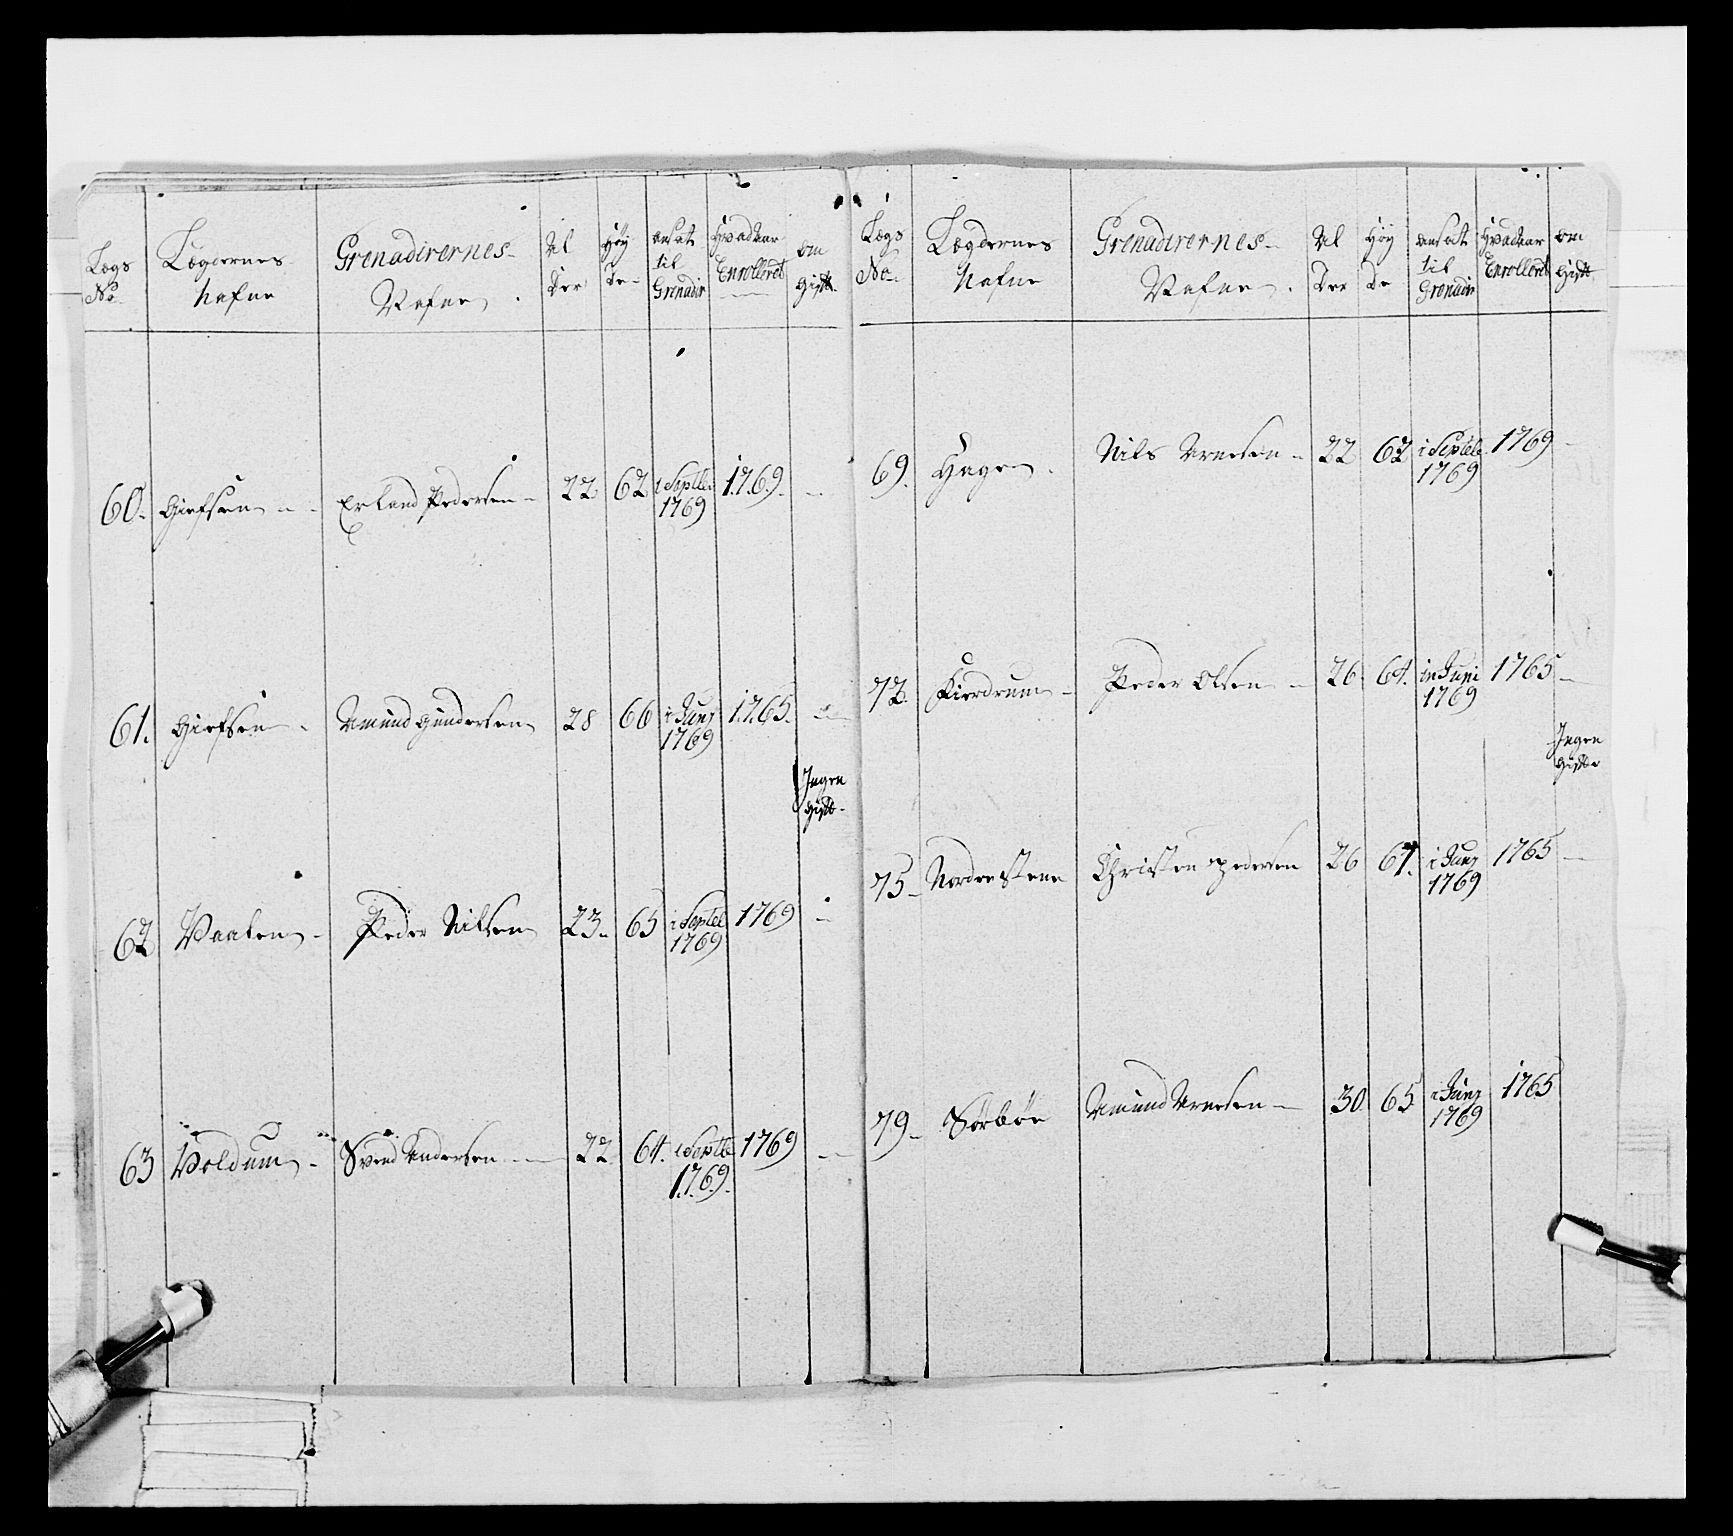 Lægs No. Lægdernes Nafne Grenadirernes Nafne Al der Høy de ansat til Grenadir Hvad aar Enrolleret om Gift
60. Giefsen Erland Pedersen 22 62 i Septbr 1769 1769
61. Giefsen Amund Gundersen 28 66 i Juny 1769 1765
Ingen Gift
62 Vaalen Peder Nilsen 23 65 i Septbr 1769 1769
63 Voldum Svend Andersen 22 64 i Septbr 1769 1769
Lægs No. Lægdernes Nafne Grenadirernes Nafne Al der Høy de ansat til Grenadir Hvad aar Enrolleret om Gift
69. Hagen Nils Arnesen 22 62 i Septbr 1769 1769
72. Kierdrum Peder Olsen 26 64. in Juni 1769 1765
Ingen Gifte
75 Nordrestene Christen Pedersen 26 67. i Juny 1769 1765
79 Sørbøe Amund Arnesen 30 65 i Juny 1769 1765